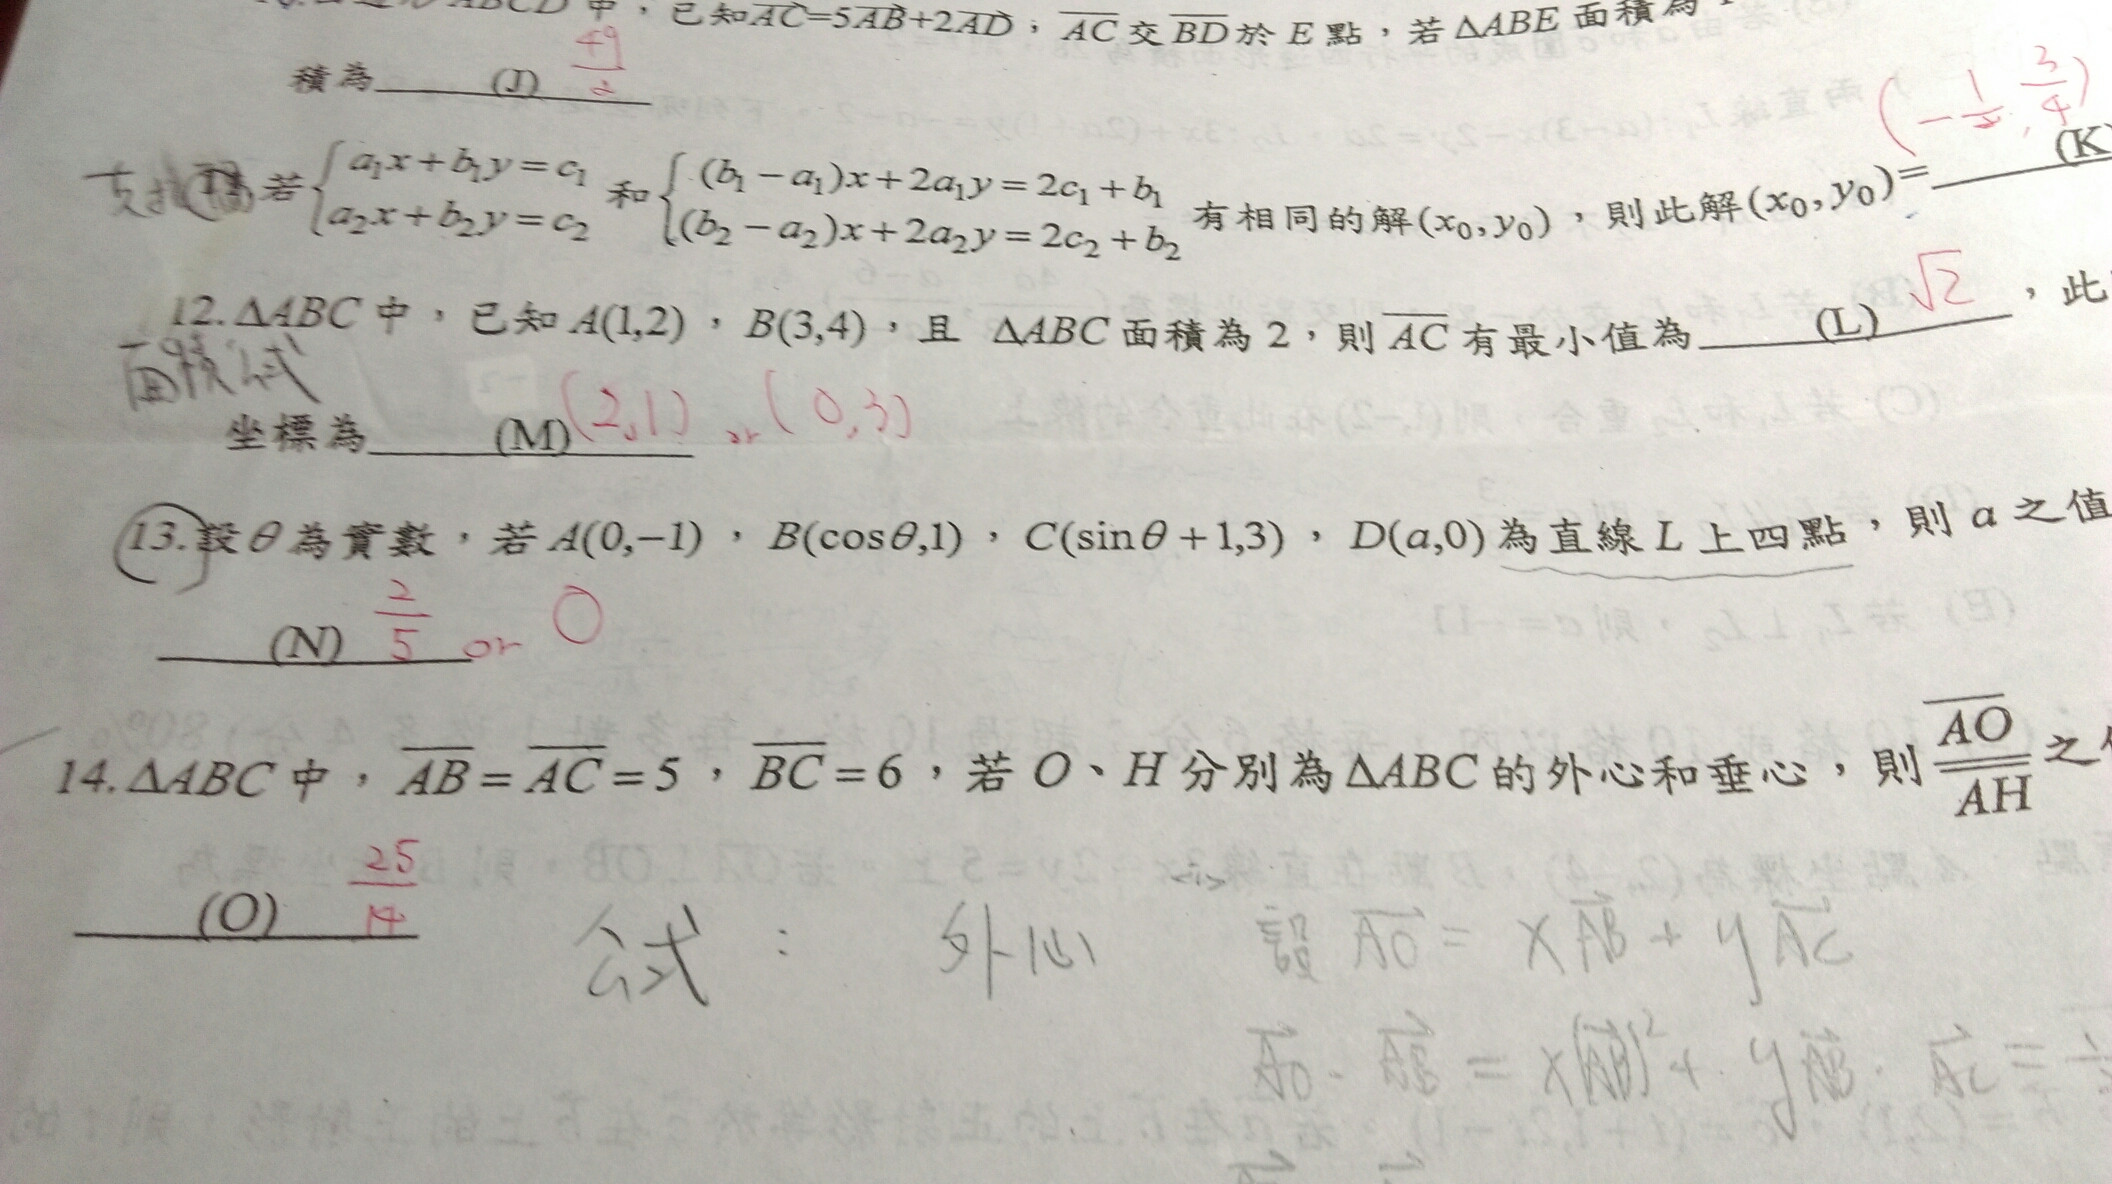 ABCD 中，已知 AC=5AB+2AD；AC 交 BD 於 E 點，若 ΔABE 面積為
積為 (J) 49/2
若 { a₁x+b₁y=c₁ 和 { (b₁−a₁)x+2a₁y=2c₁+b₁
a₂x+b₂y=c₂ (b₂−a₂)x+2a₂y=2c₂+b₂ 有相同的解(x₀,y₀)，則此解(x₀,y₀)= (K)
12.ΔABC 中，已知 A(1,2)，B(3,4)，且 ΔABC 面積為 2，則 AC 有最小值為 (L) √2，此
面積公式
坐標為 (M) (2,1) or (0,3)
13.設θ為實數，若 A(0,−1)，B(cosθ,1)，C(sinθ+1,3)，D(a,0)為直線 L 上四點，則 a 之值
(N) 2/5 or 0
14.ΔABC 中，AB=AC=5，BC=6，若 O、H 分別為 ΔABC 的外心和垂心，則 AO/AH 之
(O) 25/14
公式：外心 設 AO = xAB + yAC
AO · AB = x(AB)² + yAB · AC =